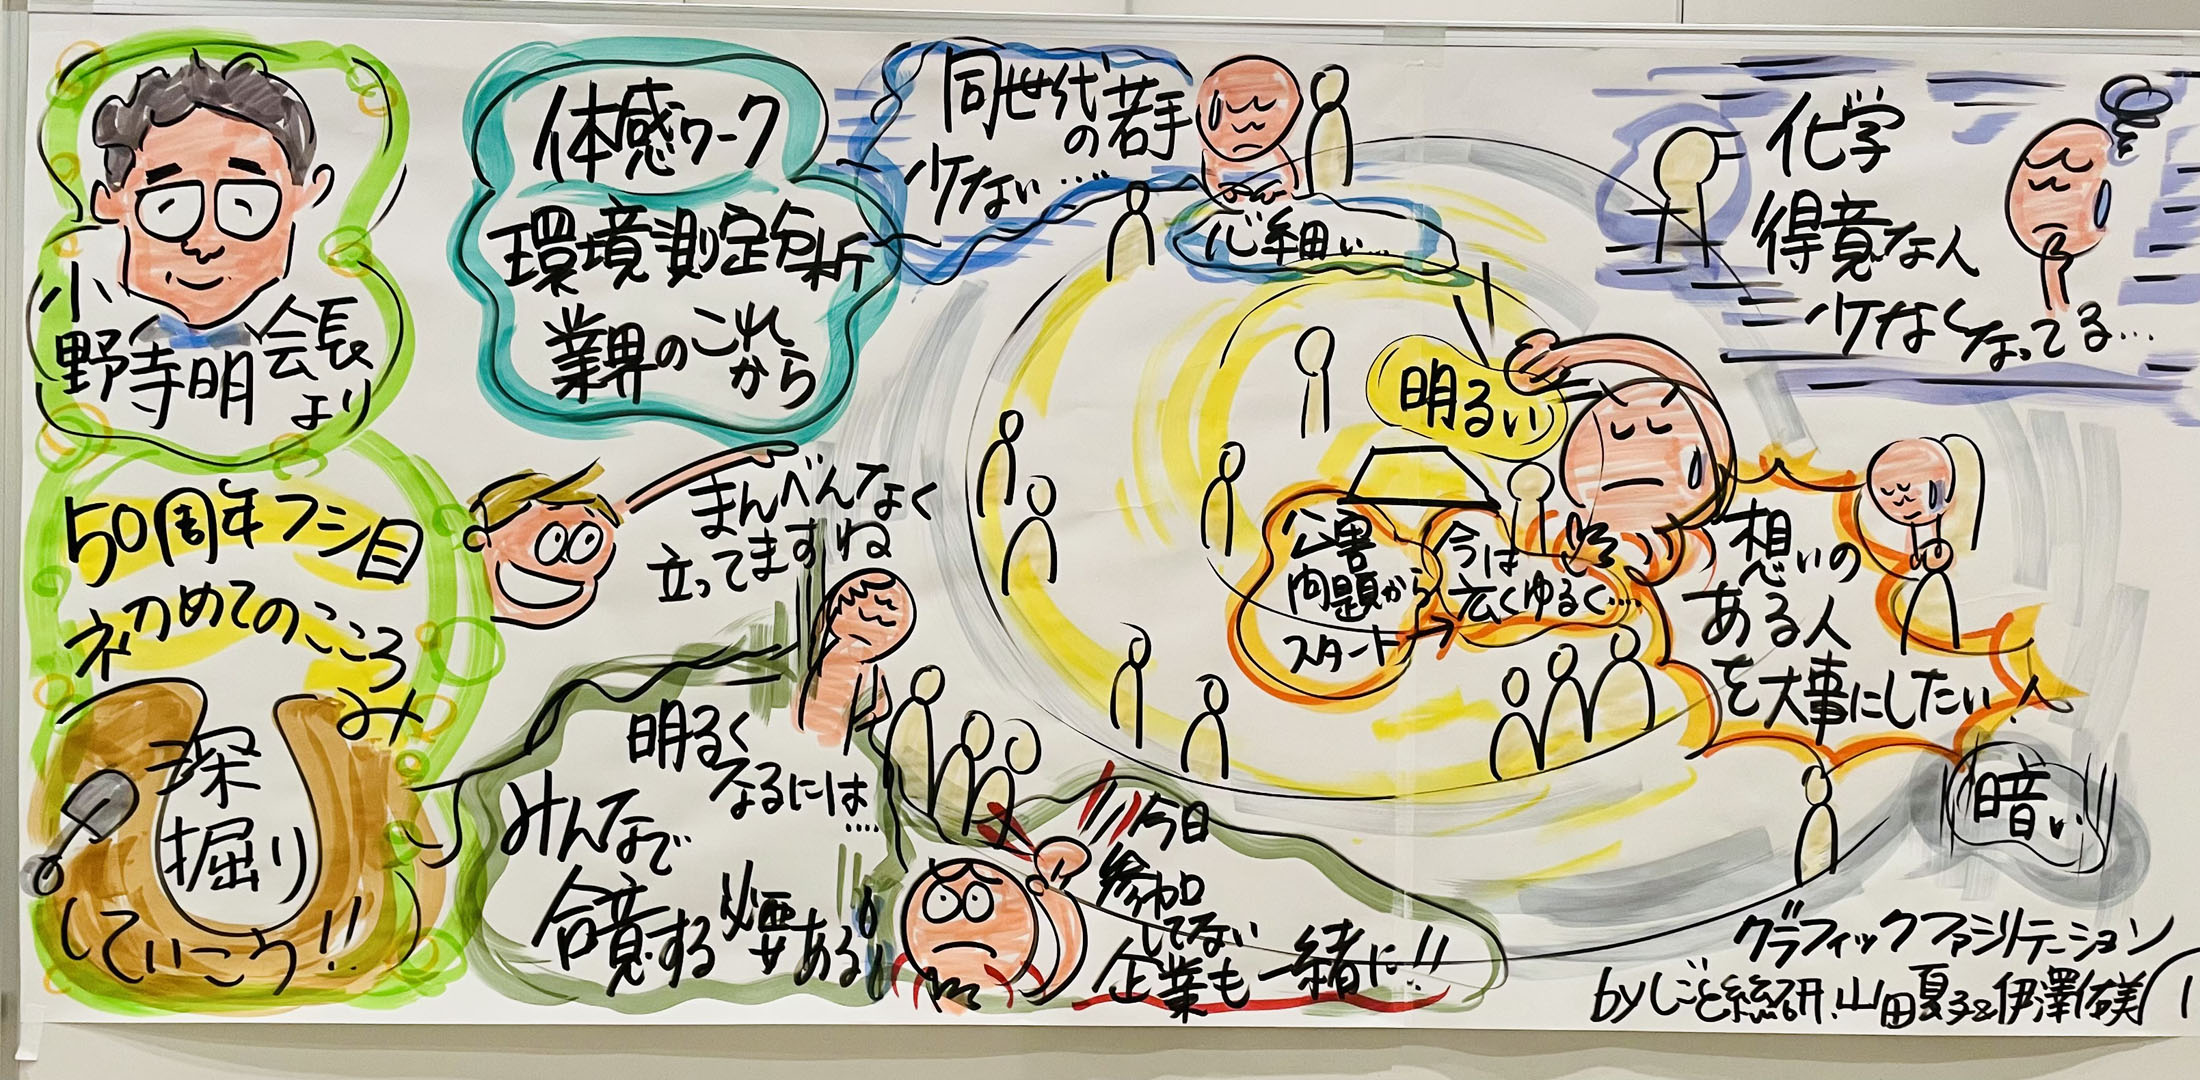 小
野寺明会長
より
50周年フシ目
初めてのこころ
み
深
掘り
していこう!!
体感ワーク
環境測定分析
業界のこれ
から
まんべんなく
立ってますね
明るく
なるには
....
みんなで
合意する必要ある!
同世代
の若手
少ない....
心細い...
明るい
公害
問題から
スタート→
今は
広くゆるく....
化学
得意な人
少なくなってる...
想いの
ある人
を大事にしたい!
今日
参加
してない
企業も一緒に!!
暗い
グラフィックファシリテーション
byしごと総研.山田夏子&伊澤佑美